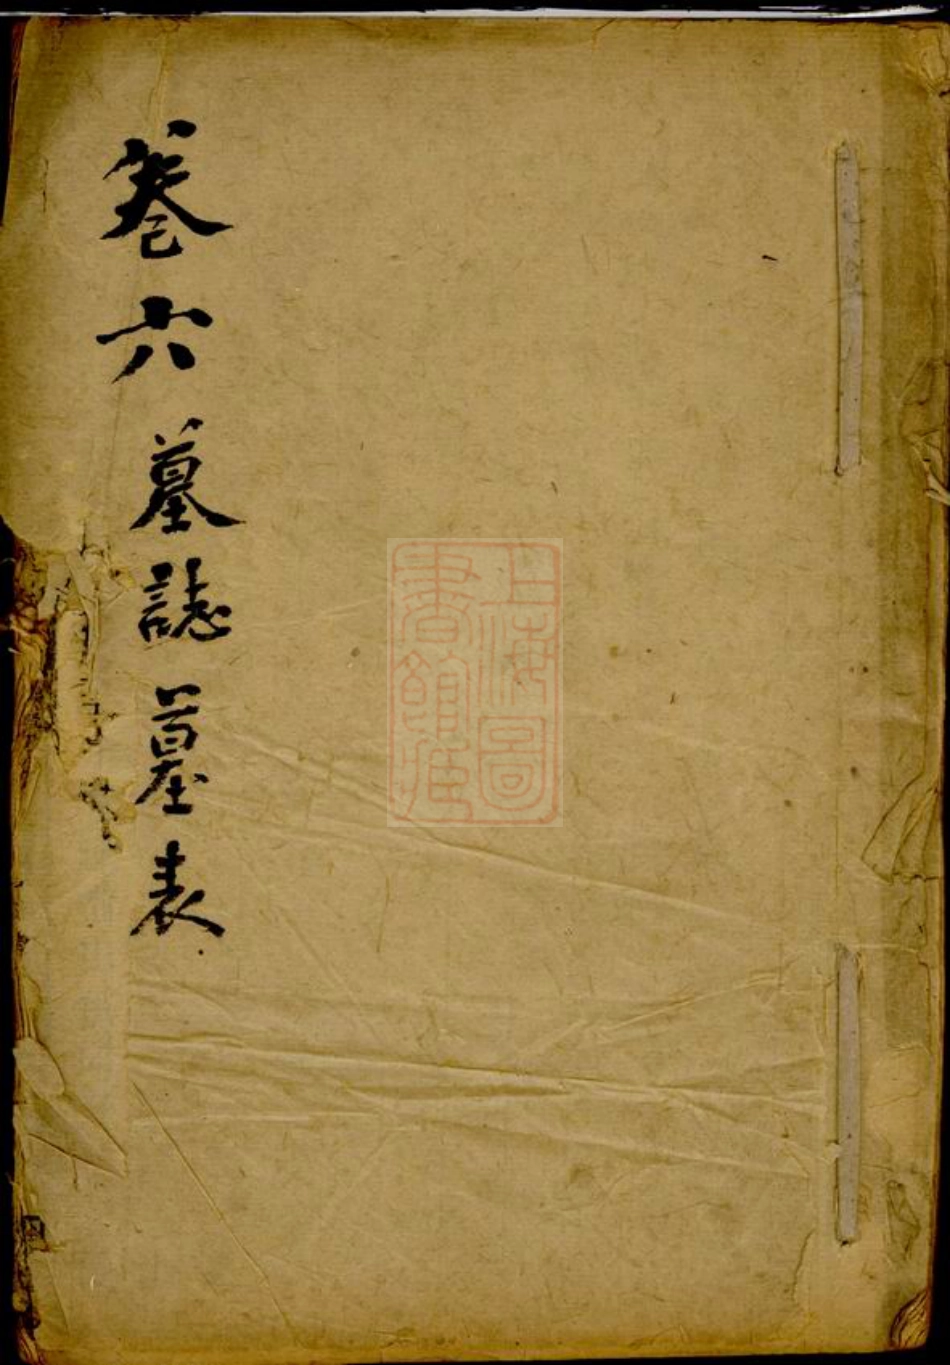 卷六墓誌墓表
上海圖書館藏